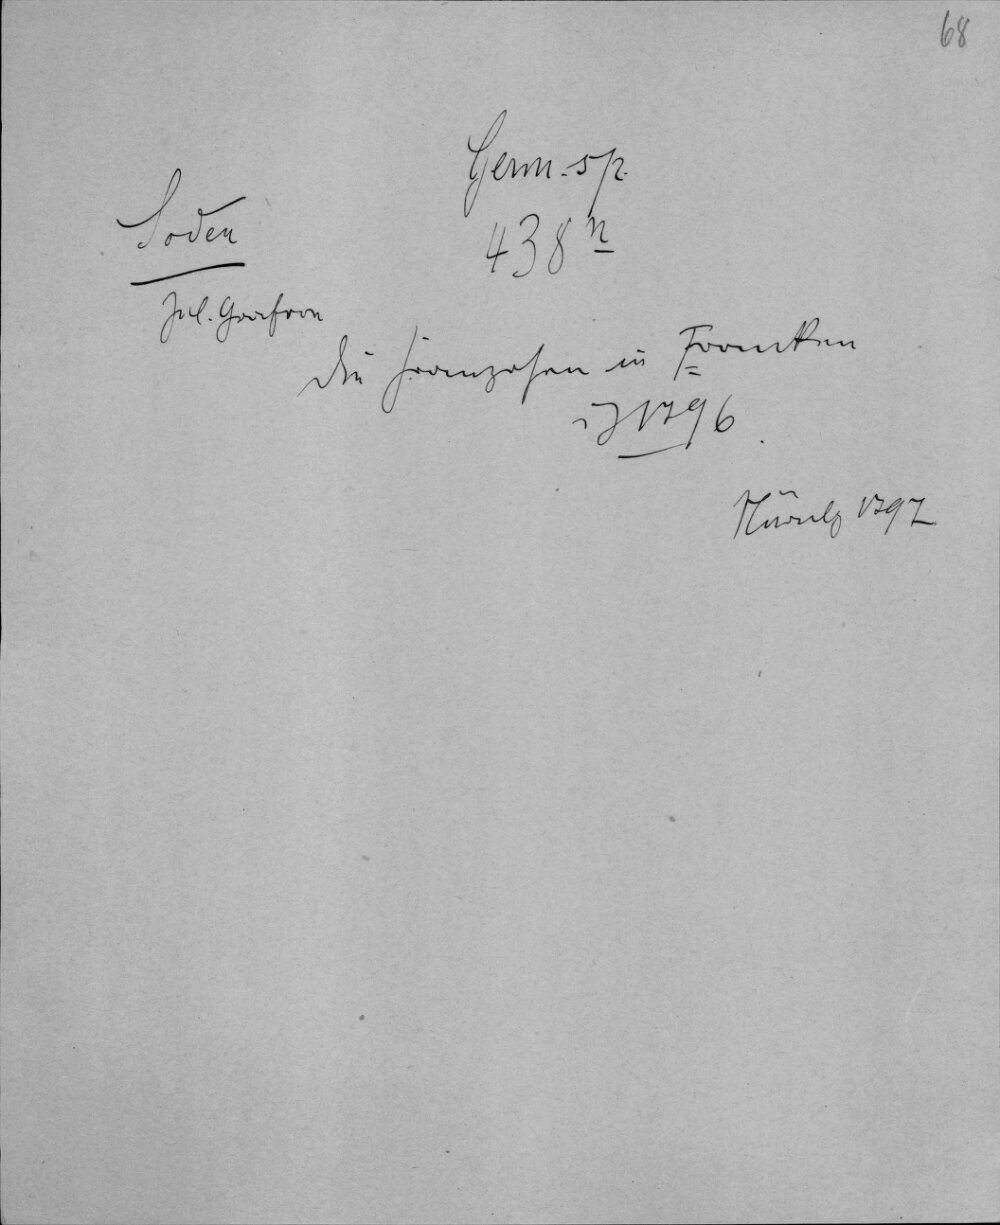 68
Germ. sp.
438 n
Soden
Jul. Graf von
Die Franzosen in Franken
i J 1796.
Nürnbg 1797